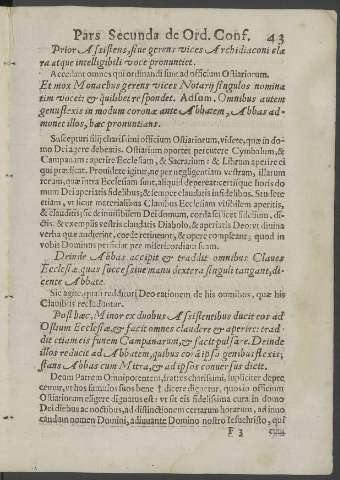 Pars Secunda de Ord. Conf. 43
Prior Assistens, siue gerens vices Archidiaconi cla
ra atque intelligibili voce pronuntiet.
Accedant omnes qui ordinandi sunt ad officium Ostiariorum.
Et mox Monachus gerens vices Notarij singulos nomina
tim vocet: & quilibet respondet. Adsum. Omnibus autem
genuflexis in modum coronæ ante Abbatem, Abbas ad-
monet illos, hæc pronuntians.
Suscepturi filij charissimi officium Ostiariorum, videte, quæ in do-
mo Dei agere debeatis. Ostiarium oportet percutere Cymbalum, &
Campanam: aperire Ecclesiam, & Sacrarium: & Librum aperire ei
qui prædicat. Prouidete igitur, ne per negligentiam vestram, illarum
rerum, quæ intra Ecclesiam sunt, aliquid depereat: certisque horis do
mum Dei aperiatis fidelibus; & semper claudatis infidelibus. Studete
etiam, vt sicut materialibus Clauibus Ecclesiam visibilem aperitis,
& clauditis; sic & inuisibilem Dei domum, corda scilicet fidelium, di-
ctis, & exemplis vestris claudatis Diabolo, & aperiatis Deo: vt diuina
verba quæ audierint, corde retineant, & opere compleant; quod in
vobis Dominus perficiat per misericordiam suam.
Deinde Abbas accipit & tradit omnibus Claues
Ecclesiæ quas successiue manu dextera singuli tangant, di-
cente Abbate.
Sic agite, quasi reddituri Deo rationem de his omnibus, quæ his
Clauibus recluduntur.
Post hæc, Minor ex duobus Assistentibus ducit eos ad
Ostium Ecclesiæ, & facit omnes claudere & aperire: tra-
dit etiam eis funem Campanarum, & facit pulsare. Deinde
illos reducit ad Abbatem, quibus coram ipso genibus flexis,
stans Abbas cum Mitra, & ad ipsos conuersus dicit.
Deum Patrem Omnipotentem, fratres charissimi, supliciter depre
cemur, vt hos famulos suos bene † dicere dignetur, quos in officium
Ostiariorum eligere dignatus est: vt sit eis fidelissima cura in domo
Dei diebus ac noctibus, ad distinctionem certarum horarum, ad inuo
candum nomen Domini, adiuuante Domino nostro Iesu christo, qui
F 3